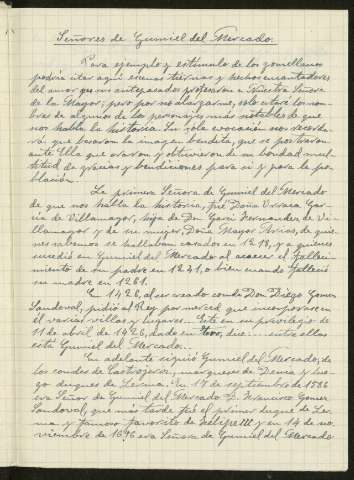 Señores de Gumiel del Mercado.
Para ejemplo y estímulo de los gomellanos
podría citar aquí escenas tiernas y hechos encantadores
del amor que sus antepasados profesaron a Nuestra Señora
de la Mayor; pero por no alargarme, solo citaré los nom-
bres de algunos de los personajes más notables de que
nos habla la historia. Su sola evocación nos recorda-
rá que besaron la imagen bendita, que se postraron
ante Ella que oraron y obtuvieron de su bondad mul-
titud de gracias y bendiciones para sí y para la po-
blación.
La primera Señora de Gumiel del Mercado
de que nos habla la historia, fué Doña Urraca Gar-
cía de Villamayor, hija de Dn. Garci Fernandez de Vi-
llamayor y de su mujer Doña Mayor Arias, de quie-
nes sabemos se hallaban casados en 1219, y a quienes
sucedió en Gumiel del Mercado al acaecer el falleci-
miento de su padre en 1241, o bien cuando falleció
su madre en 1261.
En 1426, al ser creado conde Don Diego Gomez
Sandoval, pidió al Rey por merced que incorporase en
él varias villas y lugares. Este en su privilegio de
11 de abril, de 1426, dado en Toro, dice: .... entre ellas
está Gumiel del Mercado...
En adelante siguió Gumiel del Mercado, de
los condes de Castrojeriz, marqueses de Denia y lue-
go duques de Lerma. En 17 de septiembre de 1586
era Señor de Gumiel del Mercado D. Francisco Gomez
Sandoval, que más tarde fué el primer duque de Ler-
ma y famoso favorito de Felipe III y en 14 de no-
viembre de 1696 era Señora de Gumiel del Mercado